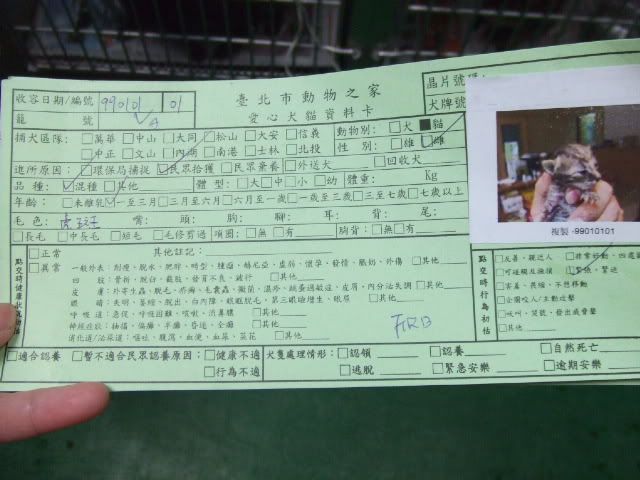 收容日期/編號 990101 01
籠 號
臺北市動物之家
愛心犬貓資料卡
晶片號碼:
犬牌號
捕犬區隊: □萬華 □中山 □大同 □松山 □大安 □信義 動物別: □犬 ■貓
□中正 □文山 □內湖 □南港 □士林 □北投 性 別: □雄 □雌
進所原因: □環保局捕捉 □民眾拾獲 □民眾棄養 □外送犬 □回收犬
品 種: □混種 □其他 體 型: □大 □中 □小 □幼 體重: Kg
年齡: □未離乳 □一至三月 □三至六月 □六月至一歲 □一歲至三歲 □三至七歲 □七歲以上
毛 色: 虎斑 嘴: 頭: 胸: 腳: 耳: 背: 尾:
□長毛 □中長毛 □短毛 □毛修剪過 項圈: □無 □有 胸背: □無 □有
複製 -99010101
點交時健康狀況初估
□正常 其他註記:
□異常 一般外表: 削瘦、脫水、肥胖、畸型、腫瘤、赫尼亞、虛弱、懷孕、發情、脹奶、外傷 □其他
四 肢: 骨折、脫臼、截肢、發育不良、跛行 □其他
皮 膚: 外寄生蟲、脫毛、疥癬、毛囊蟲、黴菌、濕疹、跳蚤過敏症、皮屑、內分泌失調 □其他
眼 睛: 失明、萎縮、脫出、白內障、眼瞼脫毛、第三眼瞼增生、眼屎 □其他
呼 吸 道: 急促、呼吸困難、咳嗽、流鼻膿 □其他
神經症狀: 抽搐、偏癱、半癱、昏迷、全癱 □其他
消化道/泌尿道: 嘔吐、腹瀉、血便、血尿、
點交時行為初估
□友善、親近人 □非常好動、四處
□可碰觸且無攻擊 □緊張、警送
□害羞、畏縮、不想移動
□企圖咬人/主動攻擊
□吠叫、哭號、發出威脅聲
□其他
□適合認養 □暫不適合民眾認養原因: □健康不適
□行為不適
犬隻處理情形: □認領 □認養 □自然死亡
□逃脫 □緊急安樂 □逾期安樂